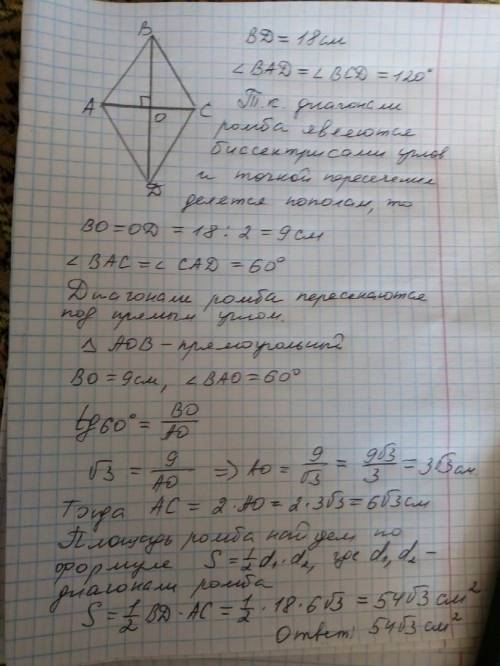 B
BD = 18 см
∠BAD = ∠BCD = 120°
A
O
C
D
Т.к. диагонали
ромба являются
биссектрисами углов
и точкой пересечения
делятся пополам, то
BO = OD = 18 : 2 = 9 см
∠BAC = ∠CAD = 60°
Диагонали ромба пересекаются
под прямым углом.
△ AOB – прямоугольный
BO = 9см, ∠BAO = 60°
tg 60° = BO/AO
√3 = 9/AO ⇒ AO = 9/√3 = 9√3/3 = 3√3 см
Тогда AC = 2·AO = 2·3√3 = 6√3 см
Площадь ромба найдем по
формуле S = 1/2 d₁·d₂, где d₁,d₂ –
диагонали ромба
S = 1/2 BD·AC = 1/2 · 18·6√3 = 54√3 см²
Ответ: 54√3 см²